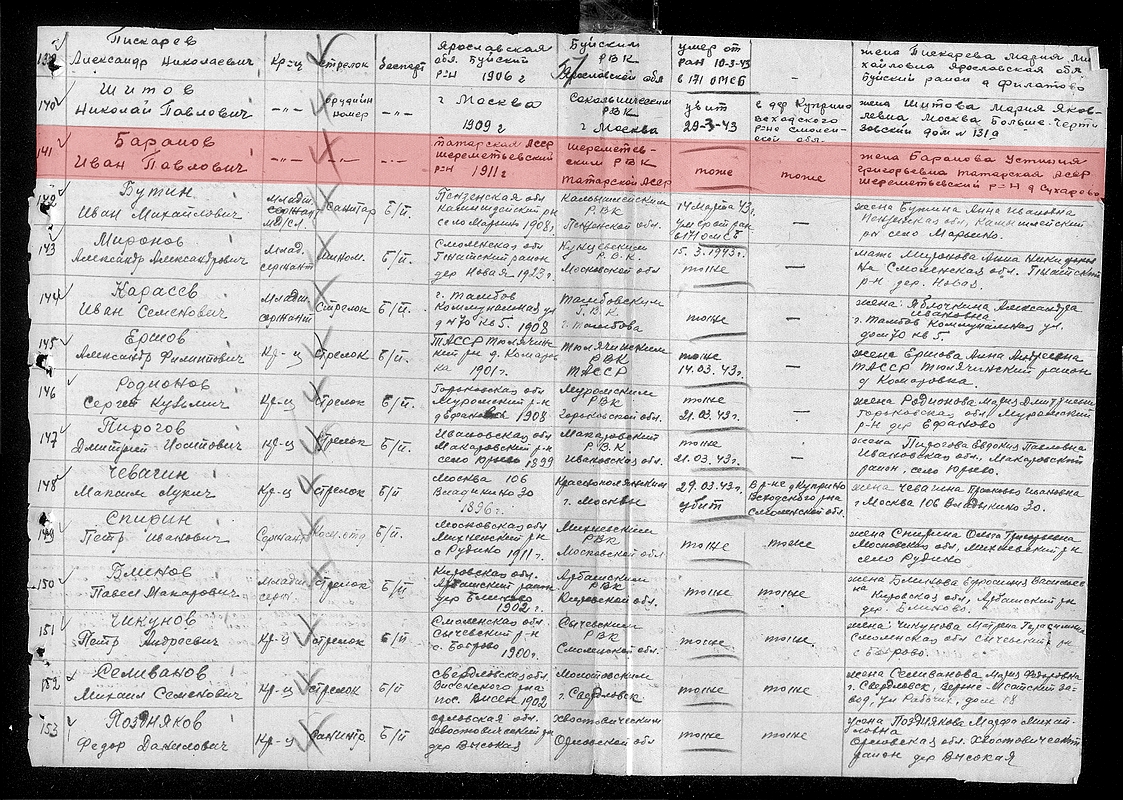 139 Пискарев Александр Николаевич Кр-ц стрелок Беспарт Ярославская обл. Буйский р-н 1906 г Буйским РВК Ярославской обл умер от ран 10-3-43 в 171 ОМСБ — жена Пискарева Мария Михайловна Ярославская обл. Буйский район д Филатово
140 Шитов Николай Павлович -"- орудийн номер -"- г Москва 1909 г Сокольническим РВК г Москва убит 29-3-43 в дер Куприно Всходского р-на Смоленской обл. жена Шитова Мария Яковлевна Москва дом № 131а
141 Баранов Иван Павлович -"- -"- -"- Татарская АССР Шереметьевский р-н 1911 г Шереметьевским РВК Татарской АССР тоже тоже жена Баранова Устиния Григорьевна Татарская АССР Шереметьевский р-н д Сухарево
142 Бутин Иван Михайлович Младш сержант м/сл. Санитар б/п. Пензенская обл село 1908 г. РВК Пензенской обл. 14 марта 43 г. Умер от ран в 171 омсб — жена Бутина Анна Ивановна Пензенская обл. рн село
143 Миронов Александр Александрович Млад. сержант б/п. Смоленская обл район дер Новая 1923 г. Кунцевским Р.В.К. Московской обл 15.3.1943 г. тоже — мать Миронова Анна Смоленская обл. р-н дер. Новая.
144 Карасев Иван Семенович Младш сержант Стрелок б/п. г. Тамбов Коммунальная ул д №70 кв 5. 1908 Тамбовским Г.В.К. г. Тамбова тоже — жена: Яблочкина Александра Ивановна г. Тамбов Коммунальная ул. дом 70 кв 5.
145 Ершов Александр Кр-ц стрелок б/п. ТАССР Тюлячинский р-н д. Комаровка 1901 г. Тюлячинским РВК ТАССР тоже 14.03.43 г. — жена Ершова Анна Андреевна ТАССР Тюлячинский район д Комаровка.
146 Родионов Сергей Кузьмич Кр-ц стрелок б/п. Горьковская обл Муромский р-н 1908 Муромским РВК Горьковской обл. тоже 21.03.43 г. — жена Родионова Мария Дмитриевна Горьковская обл Муромский р-н дер Ефаново
147 Пирогов Дмитрий Кр-ц Стрелок б/п. Ивановская обл Макаровский р-н село Юрьево 1899 Макаровский Р.В.К Ивановской обл. тоже 21.03.43 г. — жена Пирогова Евдокия Павловна Ивановская обл. Макаровский район, село Юрьево.
148 Чевагин Максим Лукич Кр-ц стрелок б/п Москва 106 Владыкино 30 1896 г. РВК г. Москвы 29.03.43 г. убит В р-не д Куприно Всходского р-на Смоленской обл. жена Чевагина Прасковья Ивановна г Москва 106 Владыкино 30.
149 Спирин Петр Иванович Сержант б/п Московская обл Михневский рн с Рудино 1911 г. Михневским РВК Московской обл тоже тоже жена Спирина Ольга Григорьевна Московская обл, Михневский р-н село Рудино
150 Блинов Павел Макарович Младш серж. Стрелок б/п Кировская обл. Арбашский район дер 1902 г. Арбашским РВК Кировской обл. тоже тоже жена Блинова Ефросинья Васильевна Кировская обл, Арбашский рн дер.
151 Чикунов Петр Андреевич Кр-ц стрелок б/п Смоленская обл. Сычевский р-н с. Боброво 1900 г. Сычевским РВК Смоленской обл. тоже тоже жена: Чикунова Матрена Герасимовна Смоленская обл Сычевский рн с Боброво.
152 Селиванов Михаил Семенович Кр-ц стрелок б/п Свердловская обл Висимского р-на пос. Висим 1902 г. Свердловск тоже тоже жена Селиванова Мария Федоровна г. Свердловск, Верхне-Исетский завод, ул Рабочих, дом 18
153 Поздняков Федор Данилович Кр-ц Санитар б/п Орловская обл. Хвостовичский рн дер Высокая Хвостовическим РВК Орловской обл тоже тоже жена Позднякова Марфа Михайловна Орловская обл. Хвостовичский район дер Высокая